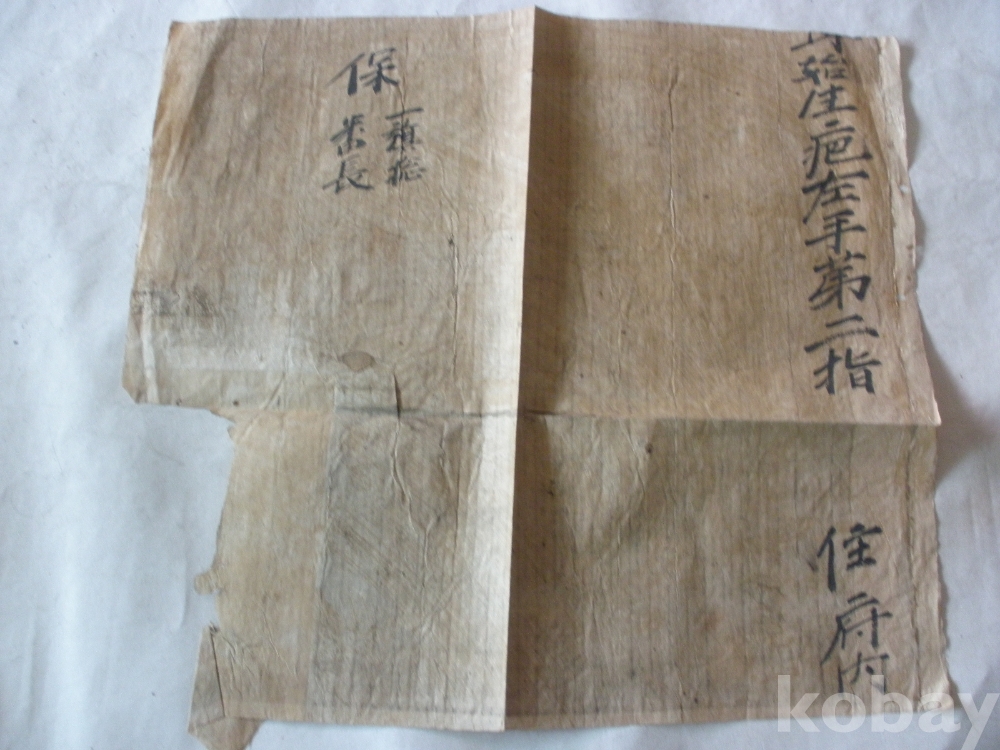 始生疤左手第二指
住府内
保
一
長
kobay